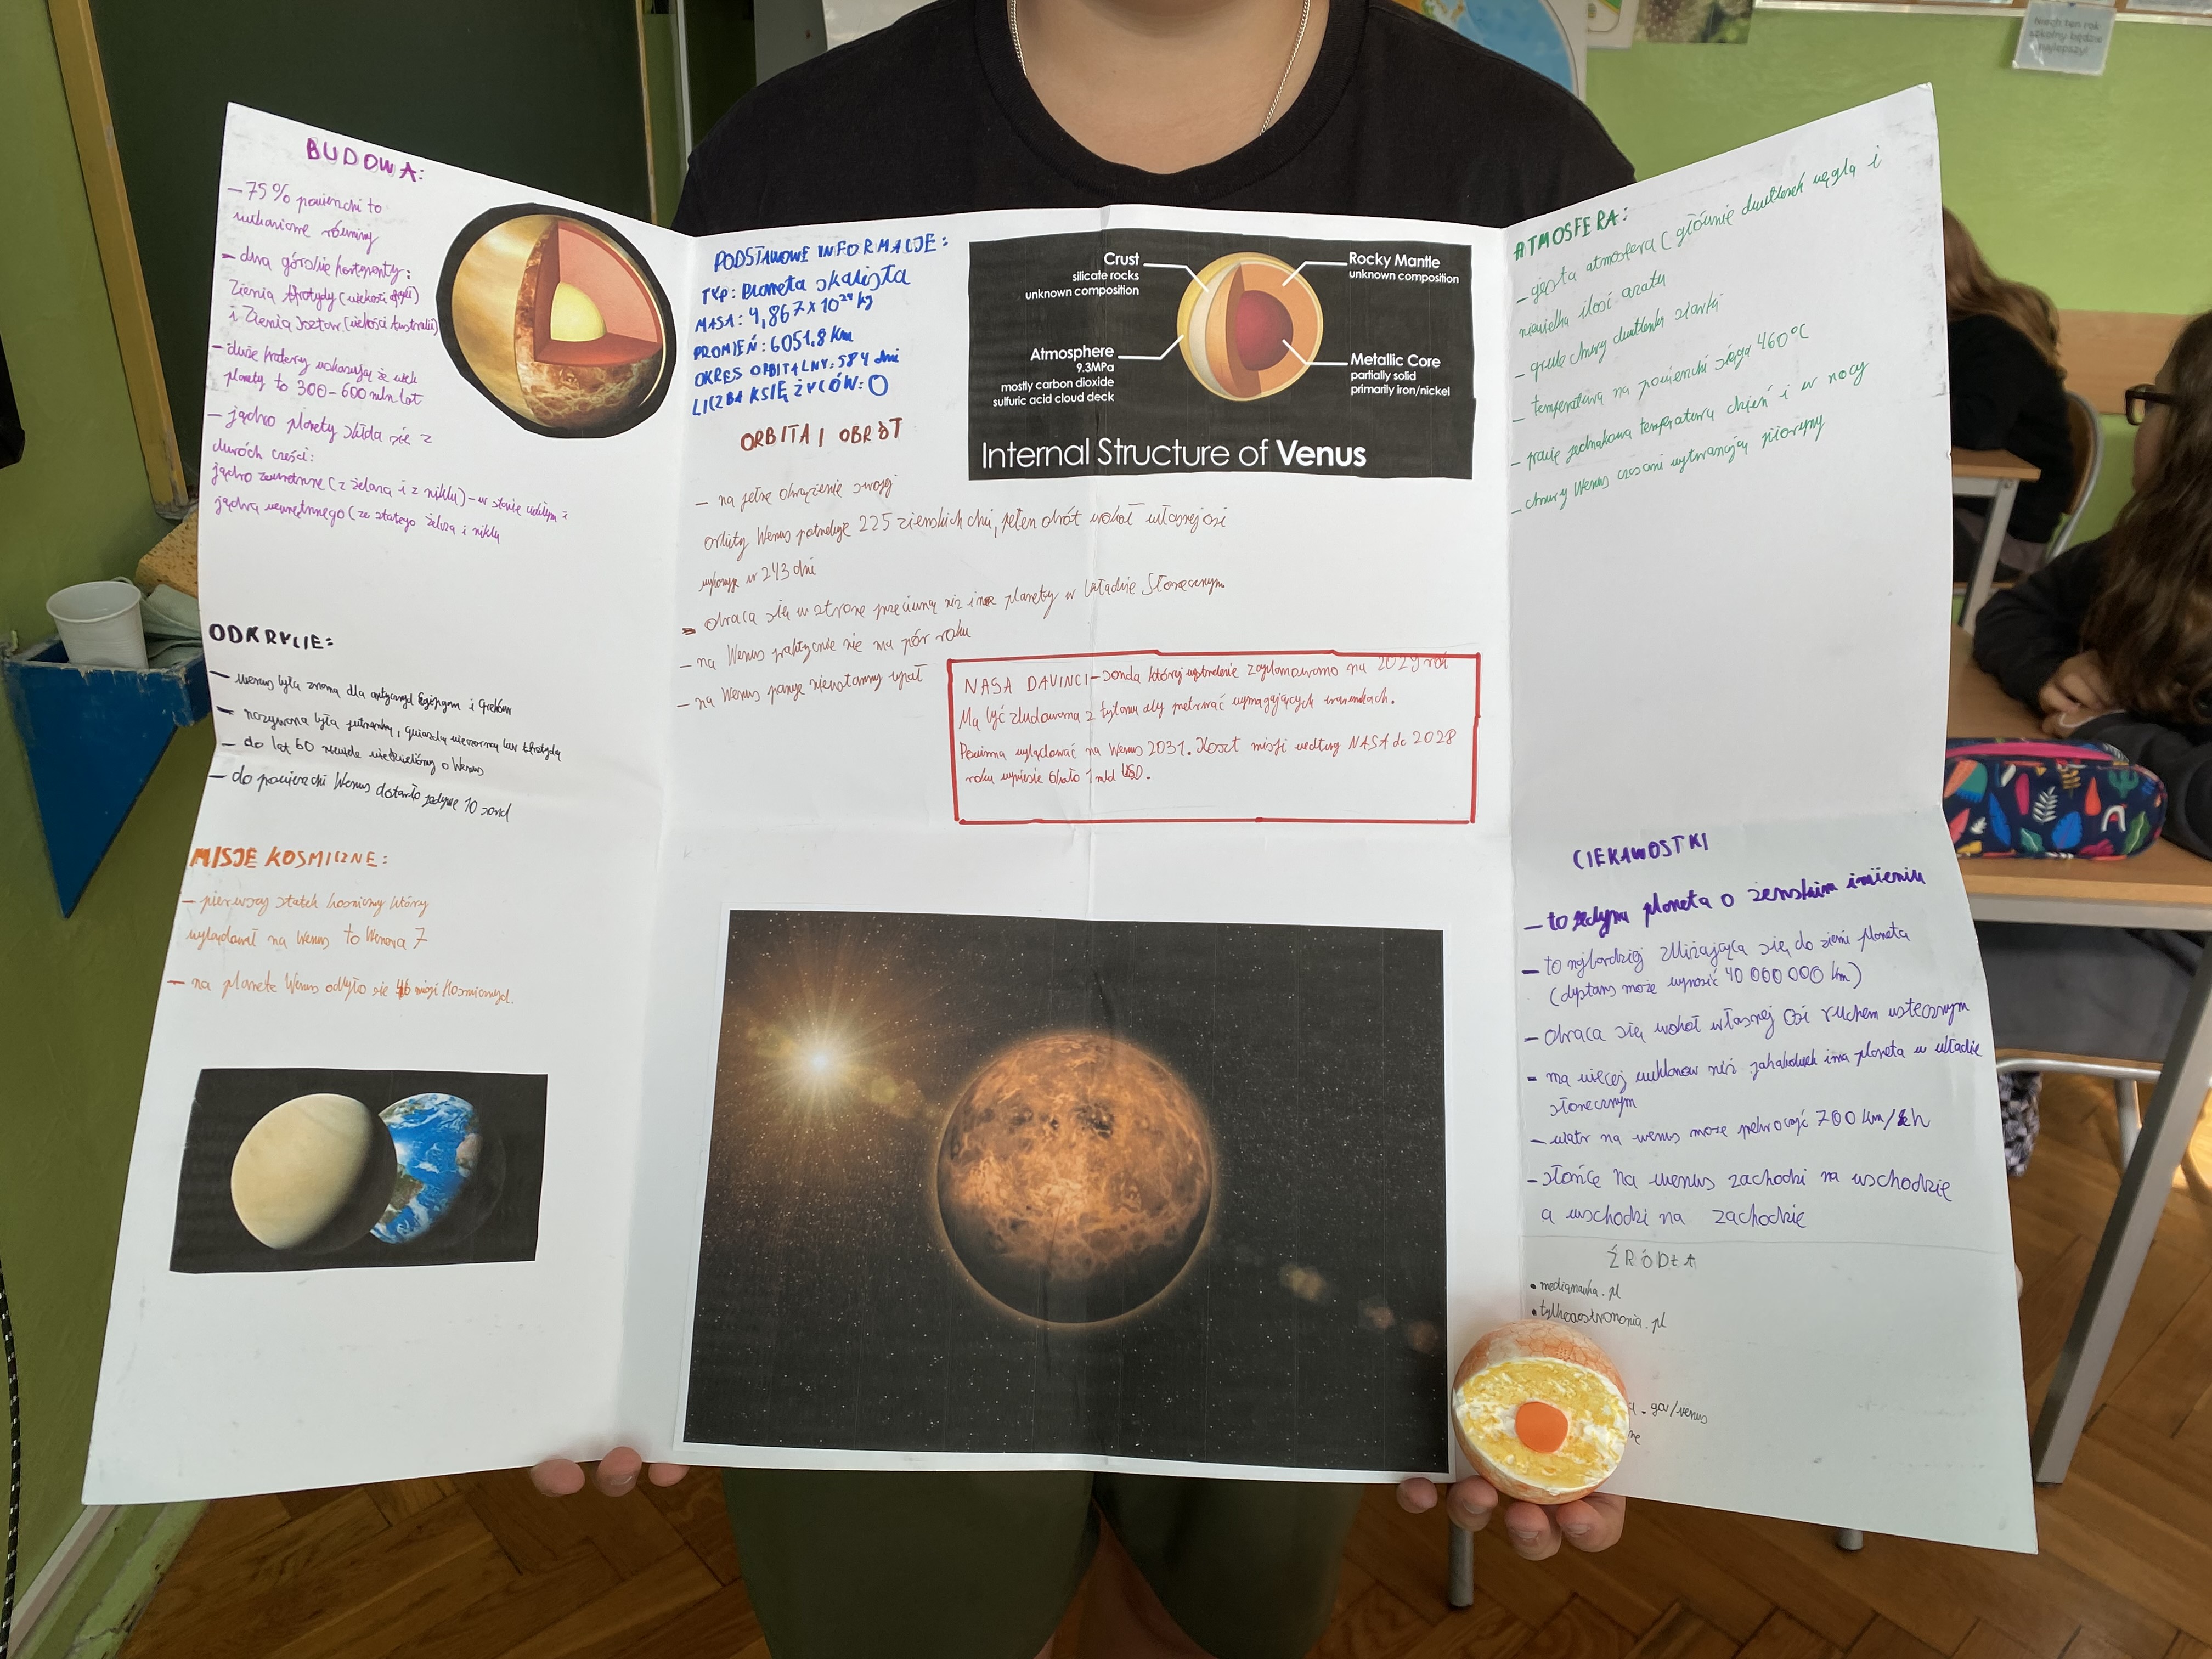 Niech ten rok
szkolny będzie
najlepszy!
BUDOWA:
– 75% powierzchni to
wulkaniczne równiny
– dwa górskie kontynenty:
Ziemia
i Ziemia Isztar (wielkości Australii)
– duże kratery wskazują że wiek
planety to 300–600 mln lat
– jądro planety składa się z
dwóch części:
jądro zewnętrzne (z żelaza i z niklu) – w stanie
jądra wewnętrznego (ze stałego żelaza i niklu
ODKRYCIE:
– Wenus była znana dla antycznych Egipcjan i Greków
– nazywana była jutrzenką, gwiazdą wieczorną lub
– do lat 60 niewiele wiedzieliśmy o Wenus
– do powierzchni Wenus dotarło jedynie 10 sond
MISJE KOSMICZNE:
– pierwszy statek kosmiczny który
wylądował na Wenus to Wenera 7
– na planete Wenus odbyło sie 46 misji kosmicznych.
PODSTAWOWE INFORMACJE:
TYP: Planeta skalista
MASA: 4,867x10²⁴ kg
PROMIEŃ: 6051.8 km
OKRES ORBITALNY: 584 dni
LICZBA KSIĘŻYCÓW: 0
Crust
silicate rocks
unknown composition
Rocky Mantle
unknown composition
Atmosphere
9.3MPa
mostly carbon dioxide
sulfuric acid cloud deck
Metallic Core
partially solid
primarily iron/nickel
Internal Structure of Venus
ORBITA I OBRÓT
– na pełne okrążenie swojej
orbity Wenus potrzebuje 225 ziemskich dni, pełen obrót wokół własnej osi
wykonuje w 243 dni
– obraca się w stronę przeciwną niż inne planety w Układzie Słonecznym
– na Wenus praktycznie nie ma pór roku
– na Wenus panuje nieustanny upał
NASA DAVINCI – sonda której wystrzelenie zaplanowano na 2029 rok
Ma być zbudowana z tytanu aby przetrwać w wymagających warunkach.
Powinna wylądować na Wenus 2031. Koszt misji według NASA do 2028
roku wyniesie około 1 mld USD.
ATMOSFERA:
– gęsta atmosfera (głównie dwutlenek węgla i
niewielka ilość azotu
– grube chmury dwutlenku siarki
– temperatura na powierzchni sięga 460°C
– prawie jednakowa temperatura dzień i w nocy
– chmury Wenus czasami wytwarzają pioruny
CIEKAWOSTKI
– to jedyna planeta o żeńskim imieniu
– to najbardziej zbliżająca się do ziemi planeta
(dystans może wynosić 40 000 000 km)
– obraca się wokół własnej osi ruchem wstecznym
– ma więcej wulkanów niż jakakolwiek inna planeta w układzie
słonecznym
– wiatr na wenus może przekroczyć 700 km/h
– słońce na wenus zachodzi na wschodzie
a wschodzi na zachodzie
ŹRÓDŁA
• medianauka.pl
• tylkoastronomia.pl
.gov/venus